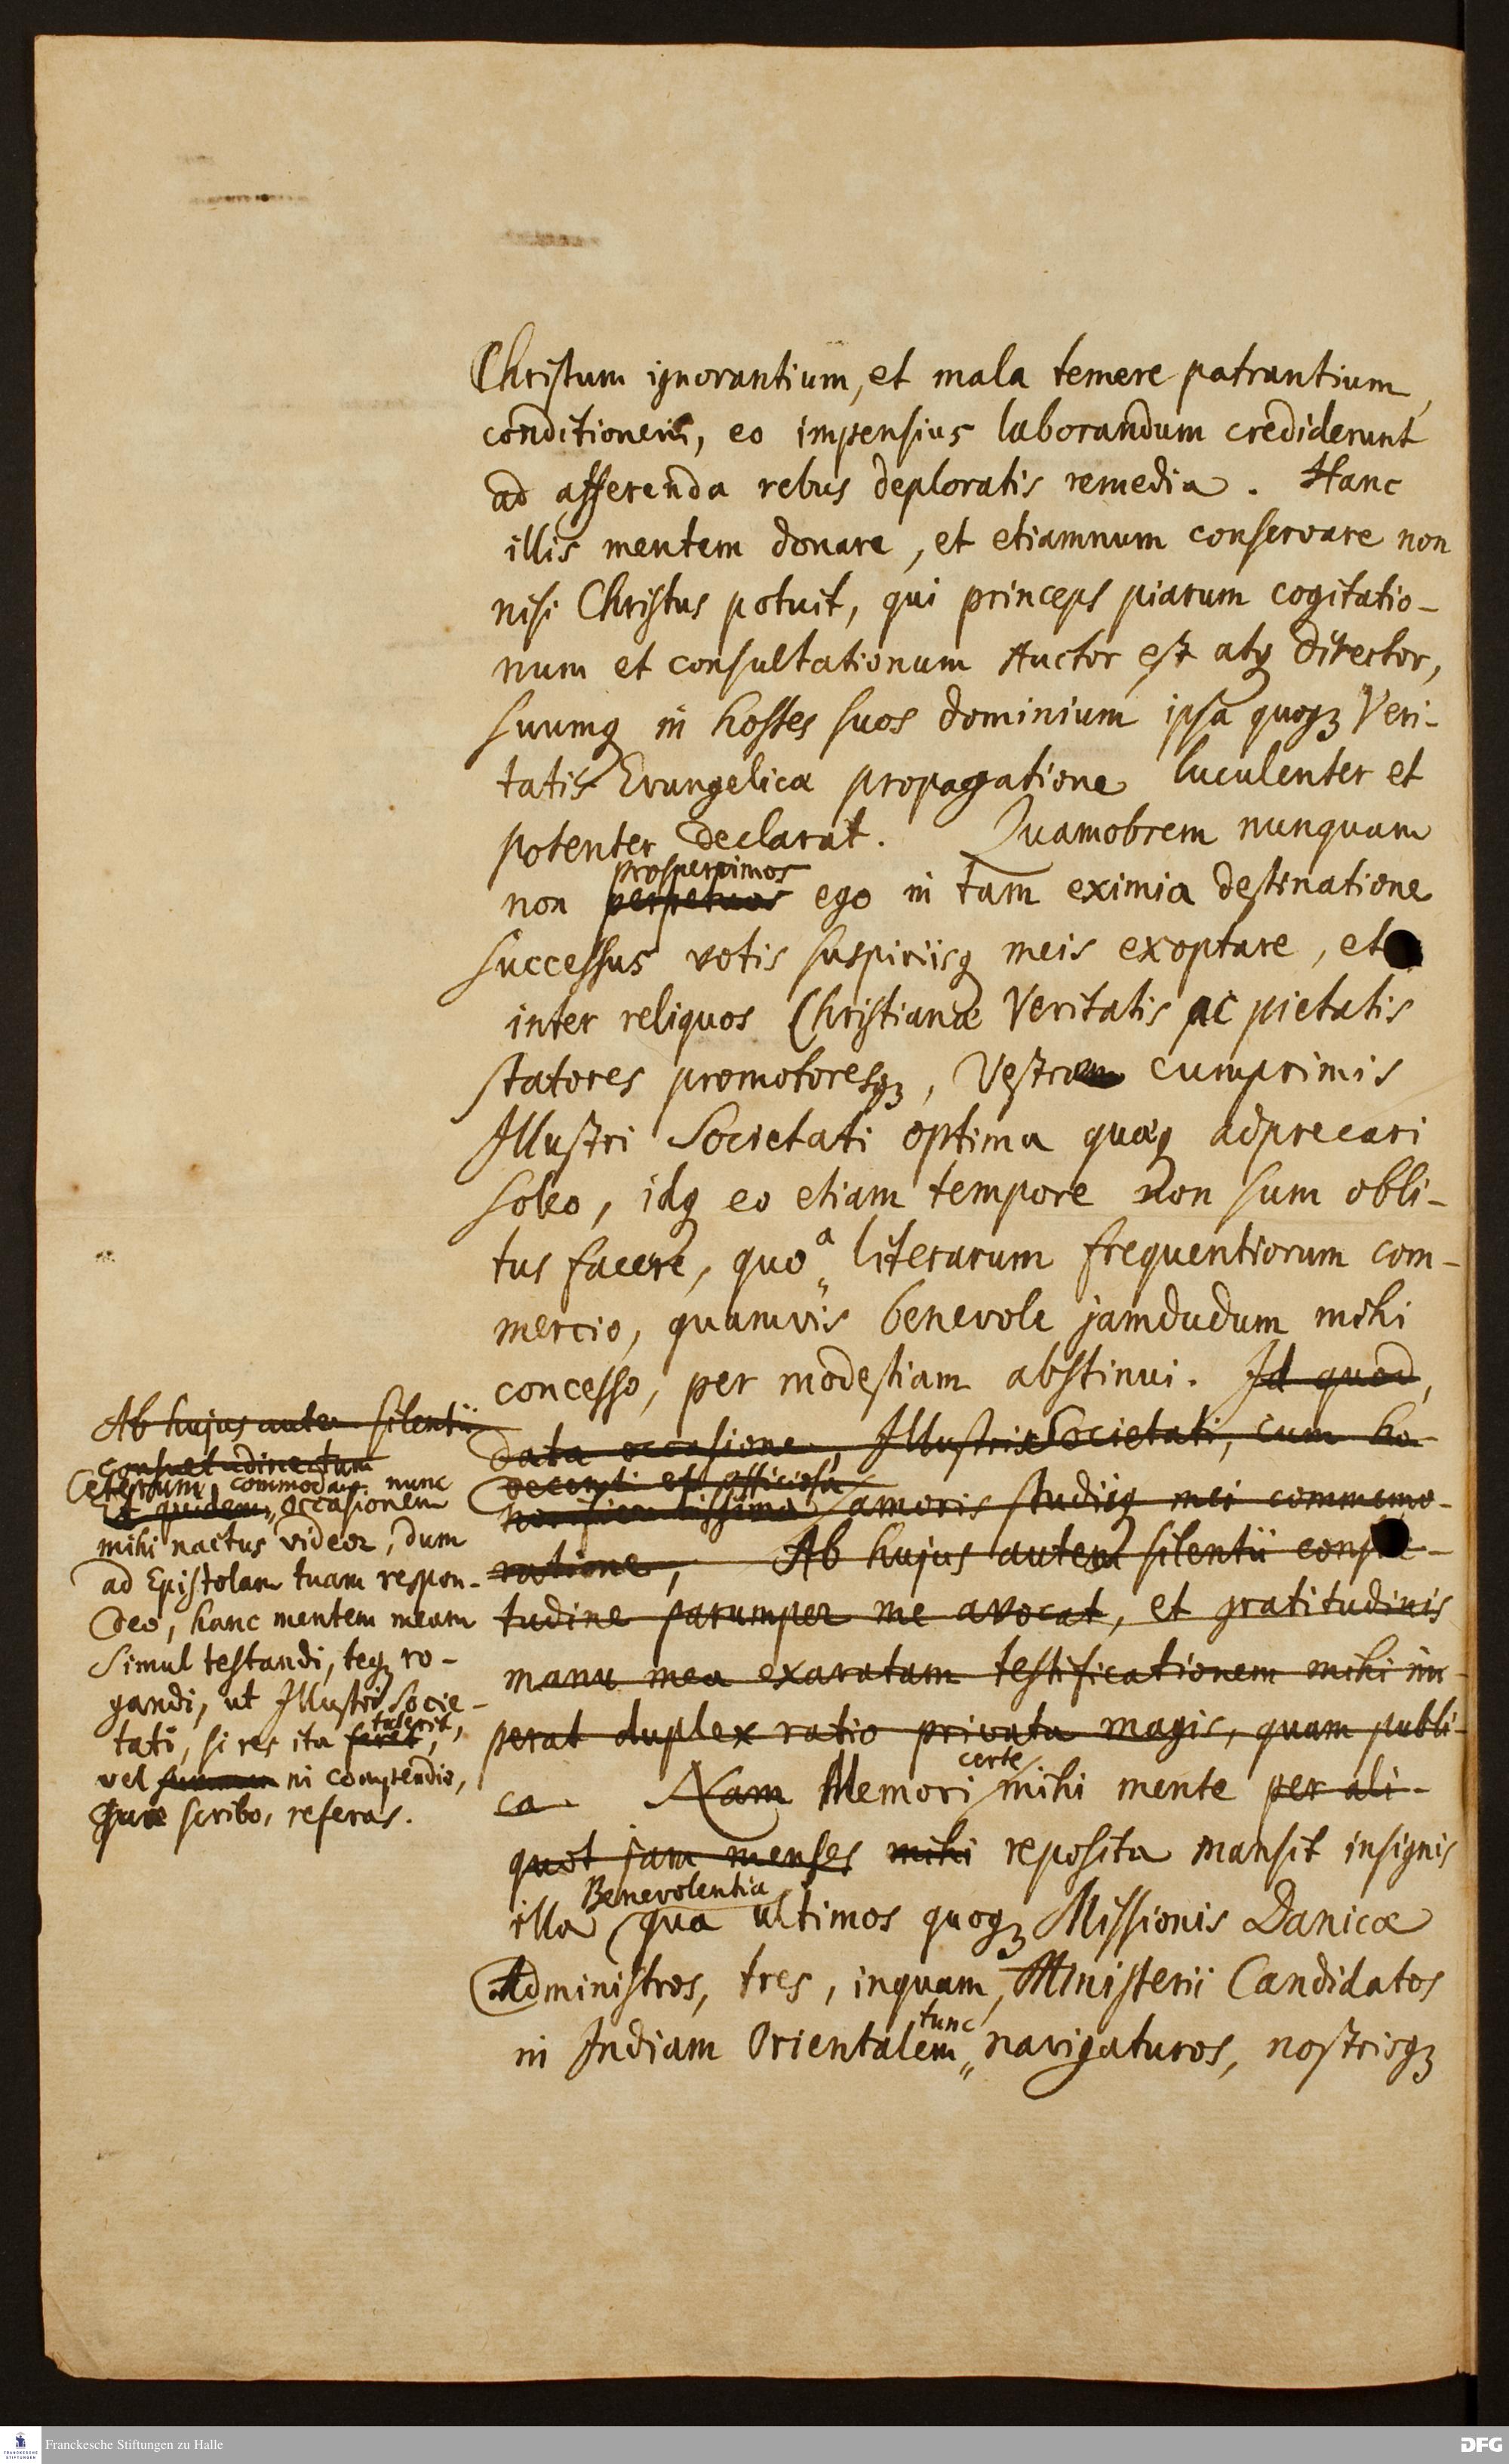 Christum ignorantium, et mala temere patrantium,
conditionem, eo impensius laborandum crediderunt
ad afferenda rebus deploratis remedia. Hanc
illis mentem donare, et etiamnum conservare non
nisi Christus potuit, qui princeps piarum cogitatio-
num et consultationum Auctor est atq director,
suumq in hostes suos dominium ipsa quoqꝫ Veri-
tatis Evangelicæ propagatione luculenter et
potenter declarat. Quamobrem nunquam
prosperrimos
non perpetuos ego in tam eximia destinatione
successus votis suspiriisq meis exoptare, et
inter reliquos Christianæ Veritatis ac pietatis
statores promotoresqꝫ, Vestræ cumprimis
Illustri Societati optima quæq adprecari
soleo, idq eo etiam tempore non sum obli-
tus facere, quo a literarum frequentiorum com-
mercio, quamvis benevole jamdudum mihi
concesso, per modestiam abstinui. Id quod,
data occasione, Illustris Societati, cum ho-
decenti et officiosa
norificentissima amoris studiiq mei commemo-
ratione, Ab hujus autem silentii consue-
tudine parumper me avocat, et gratitudinis
manu mea exaratam testificationem mihi im-
perat duplex ratio privata magis, quam publi-
ca. Nam Memori certe mihi mente per ali-
quot jam menses mihi reposita mansit insignis
Benevolentia
illa qua ultimos quoqꝫ Missionis Danicæ
Administros, tres, inquam, Ministerii Candidatos
tunc
in Indiam Orientalem navigaturos, nostrisqꝫ
Ab hujus autem silentii
consuetudine tum
Ceterum, commodam nunc
Et quidem occasionem
mihi nactus videor, dum
ad Epistolam tuam respon-
deo, hanc mentem meam
simul testandi, teqꝫ ro-
gandi, ut Illustri Socie-
tati, si res ita feret, tulerit,
vel in compendio,
quæ scribo, referas.
Franckesche Stiftungen zu Halle
FRANCKESCHE STIFTUNGEN
DFG